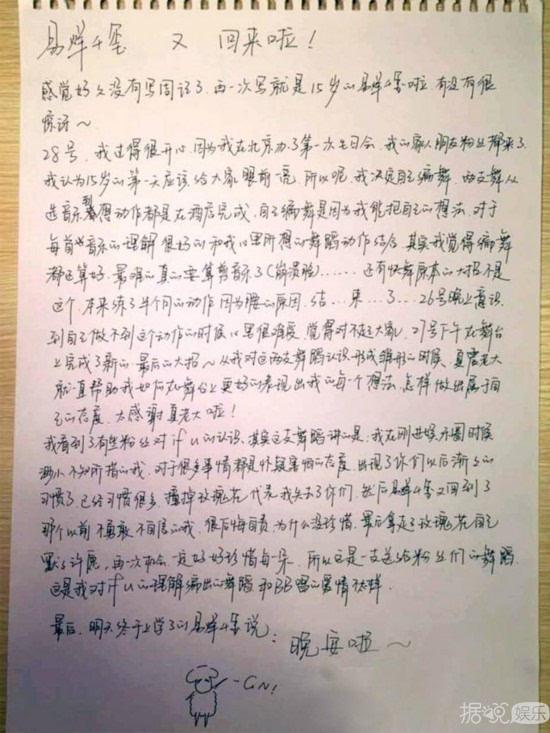 易烊千玺 又 回来啦!
感觉好久没有写周记了,再一次写就是15岁的易烊千玺啦,有没有很
惊讶~
28号,我过得很开心,因为我在北京办了第一次生日会,我的家人朋友粉丝都来了
我认为15岁的第一天应该给大家眼前一亮,所以呢,我决定自己编舞,两支舞从
选音乐到想动作都是在酒店完成,自己编舞是因为我能把自己的想法,对于
每首音乐的理解很好的和我心里所想的舞蹈动作结合,其实我觉得编舞
都还算好,最难的真的要算剪音乐了(崩溃脸)……还有快舞原本的大招不是
这个,本来练了半个月的动作因为腰的原因,结…果…了…26号晚上意识
到自己做不到这个动作的时候心里很难受,觉得对不起大家,27号下午在舞台
上完成了新的最后的大招~从我对这两支舞蹈认识形成雏形的时候,夏震老大
就一直帮助我如何在舞台上更好的表现出我的每个想法,怎样做出属于自
己的态度,太感谢夏老大啦!
我看到了有些粉丝对if u的认识,其实这支舞蹈讲的是,我在刚进娱乐圈时候
渺小不知所措的我,对于很多事情都是怀疑害怕的态度,出现了你们以后渐渐的
习惯了,已经习惯很多,撞掉玫瑰花代表我失去了你们,然后易烊千玺又回到了
那个以前不勇敢不自信的我,很后悔自责为什么没珍惜,最后拿起了玫瑰花自己
默默许愿,再一次机会一定好好珍惜每一朵,所以这是一支送给粉丝们的舞蹈,
这是我对if u的理解编出的舞蹈和BB唱的爱情不一样,
最后,明天终于上学了的易烊千玺说: 晚安啦~
-GN!
据说娱乐